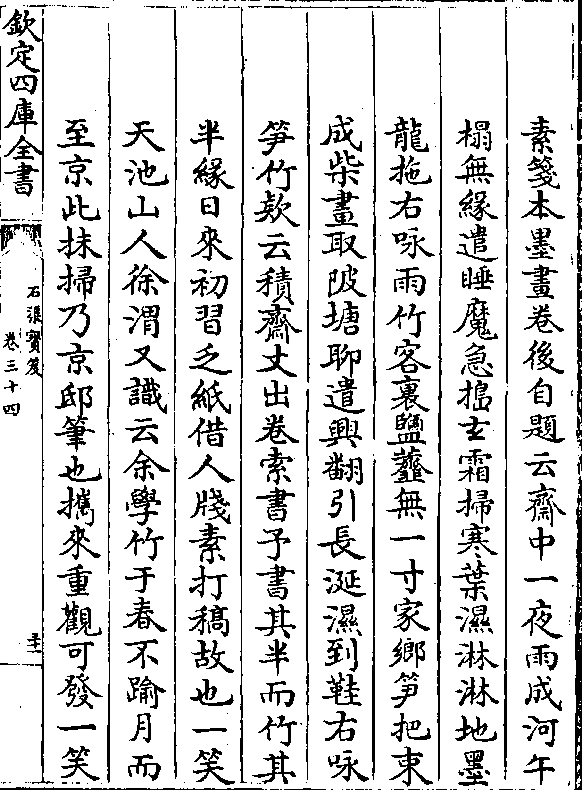 素箋本墨畫巻後自題云齋中一夜雨成河午
榻無縁遣睡魔急搗𤣥霜掃寒葉濕淋淋地墨
龍拖右咏雨竹客裏鹽虀無一寸家鄉笋把東
成柴畫取陂塘聊遣興翻引長涎濕到鞋右咏
笋竹欵云積齋丈出卷索書予書其半而竹其
半緣日來初習乏紙借人牋素打稿故也一笑
天池山人徐渭又識云余學竹于春不踰月而
至京此抹掃乃京邸筆也攜來重觀可發一笑
欽定四庫全書
石渠寳笈
卷三十四